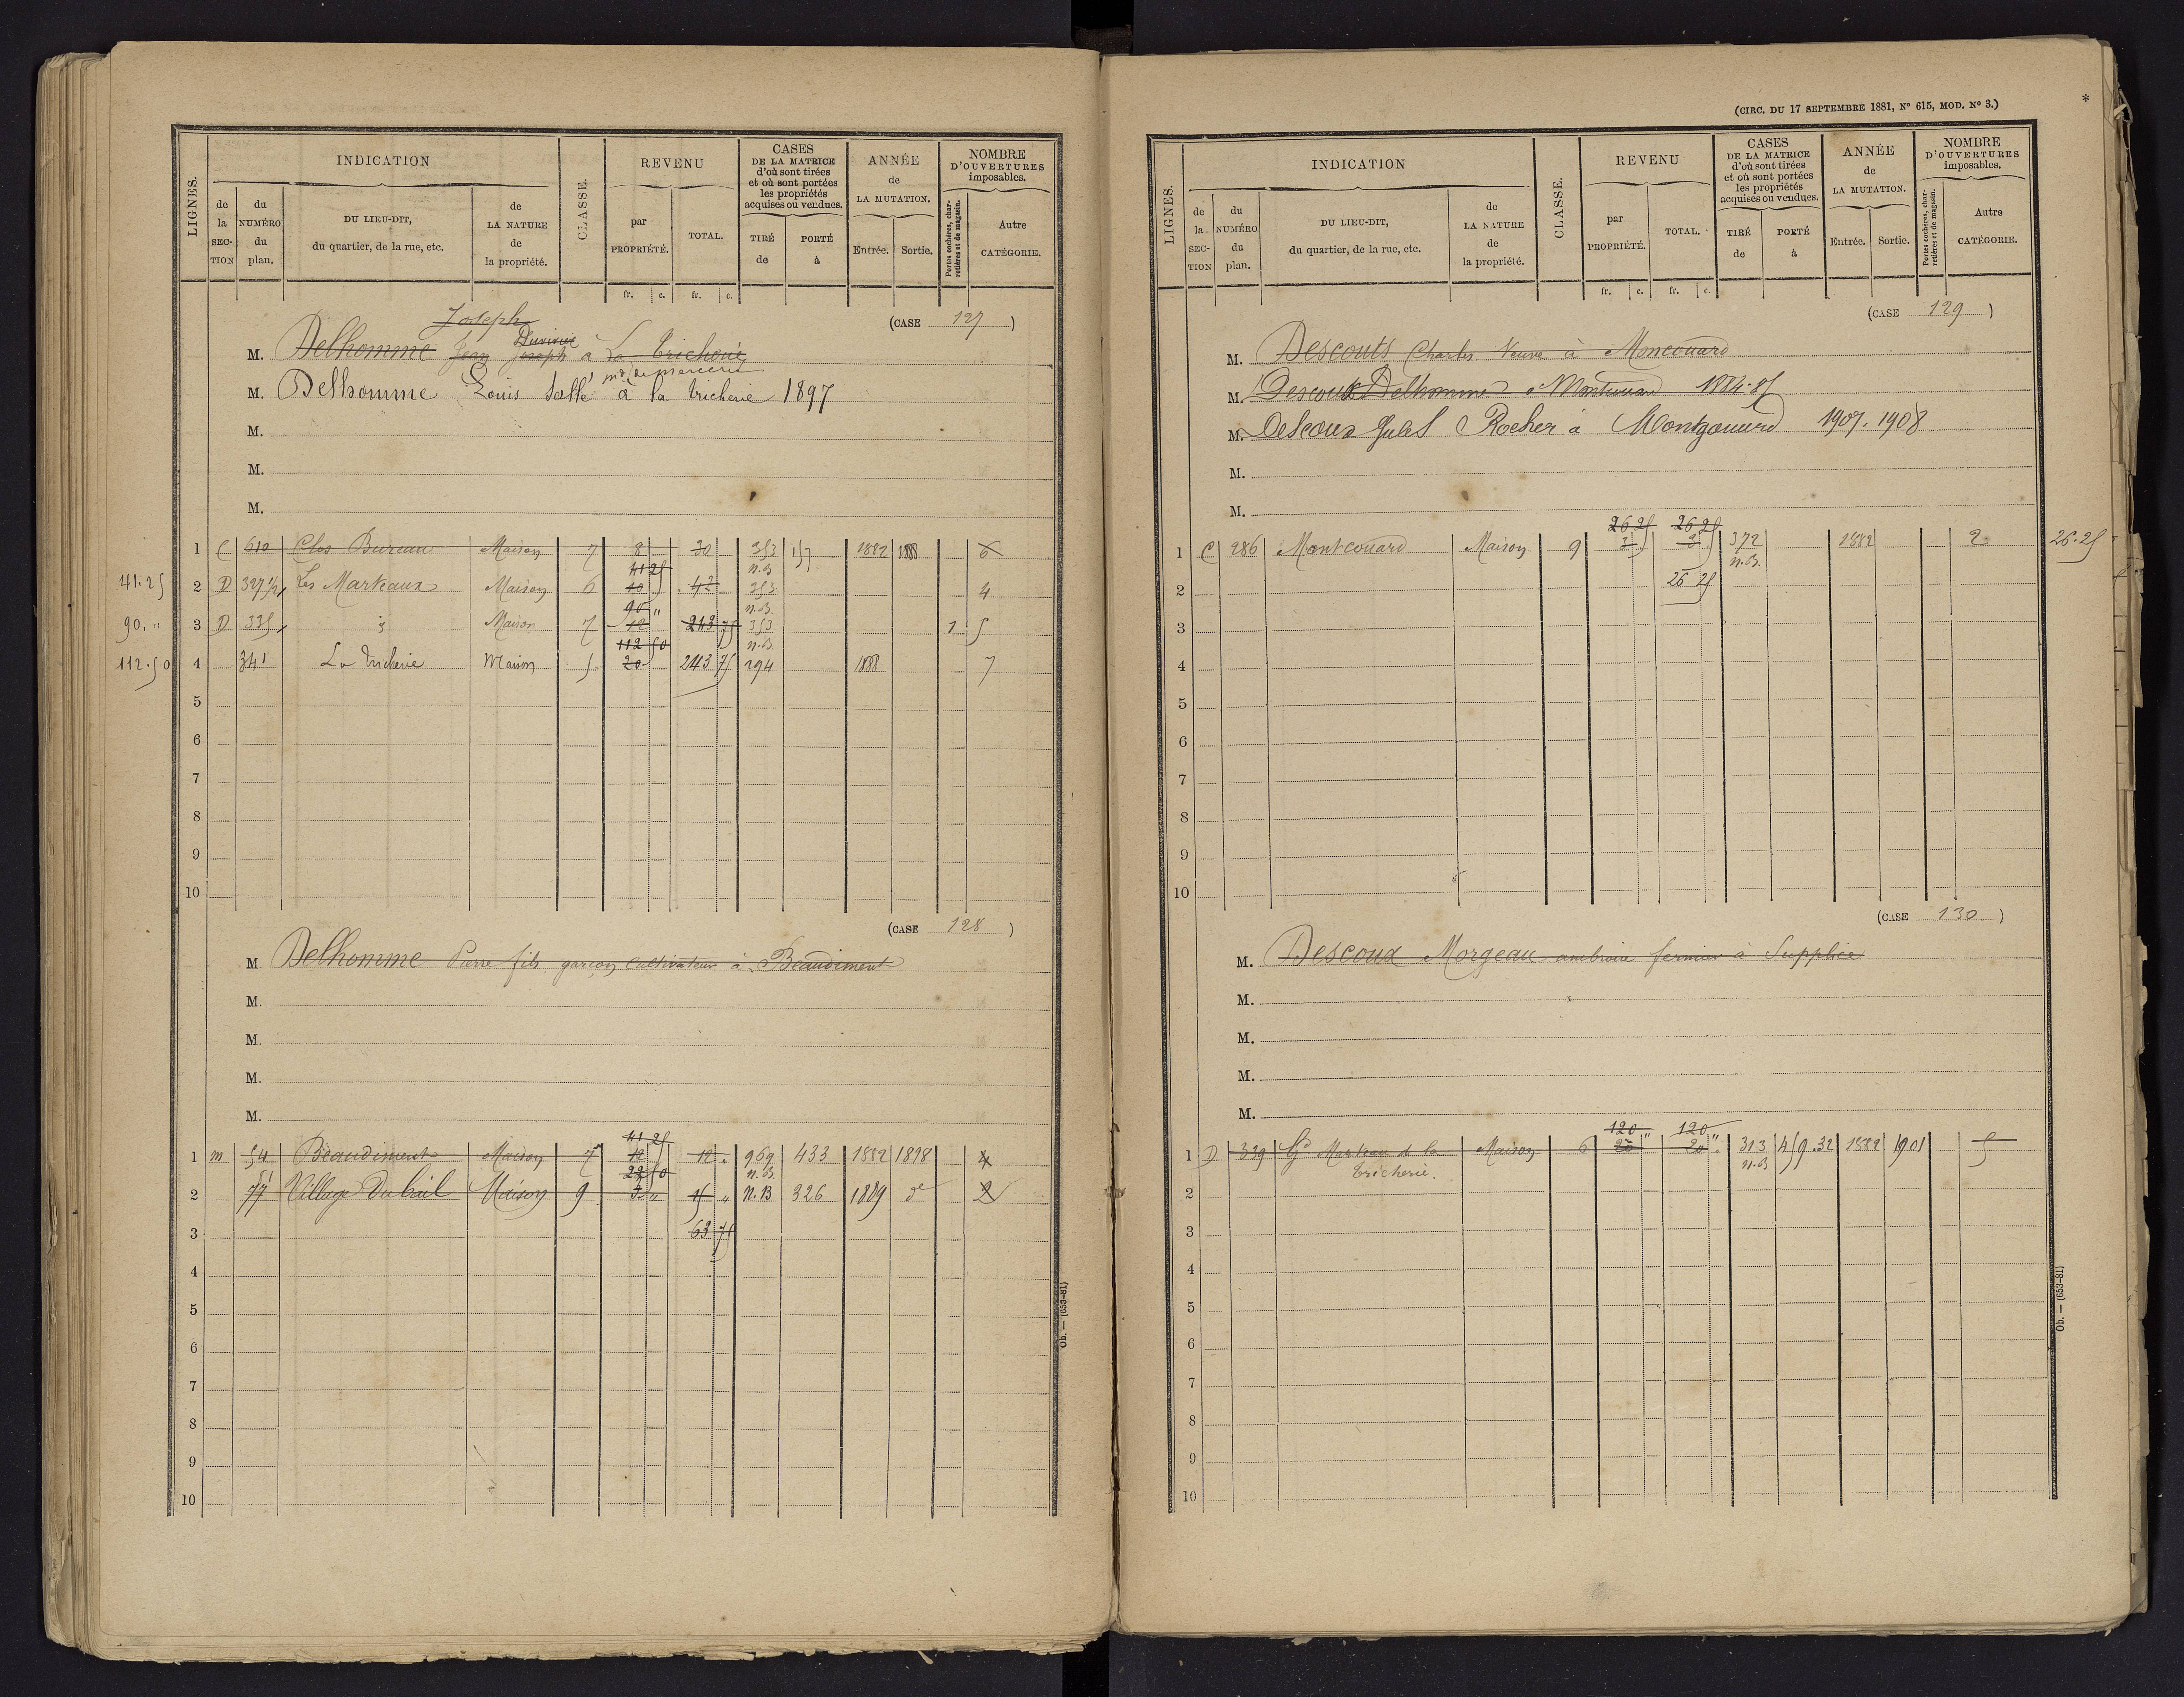 LIGNES.
INDICATION
de la SECTION
du NUMÉRO du plan.
DU LIEU-DIT, du quartier, de la rue, etc.
de LA NATURE de la propriété.
CLASSE.
REVENU
par PROPRIÉTÉ.
TOTAL.
CASES DE LA MATRICE d'où sont tirées et où sont portées les propriétés acquises ou vendues.
TIRÉ de
PORTÉ à
ANNÉE de LA MUTATION.
Entrée. Sortie.
NOMBRE D'OUVERTURES imposables.
Portes cochères, charretières et de magasin.
Autre CATÉGORIE.
fr. c. fr. c.
(CASE 127)
Joseph
M. Delhomme Jean Joseph à La Tricherie
md de mercerie
M. Delhomme Louis Sallé à la Tricherie 1897
M.
M.
M.
1 C 610 Clos Bureau Maison 7 8 30 353 157 1882 1888 6
41 25 n.B.
41.25 2 D 327 1/2 Les Marteaux Maison 6 10 42 353 4
90 " n.B.
90. " 3 D 335 id Maison 7 12 243 75 353 1 5
112 50 n.B.
112.50 4 341 La Tricherie Maison 5 20 243 75 194 1888 7
5
6
7
8
9
10
(CASE 128)
M. Delhomme Pierre fils garçon cultivateur à Beaudiment
M.
M.
M.
M.
41 25
1 m 54 Beaudiment Maison 7 12 12 . 969 433 1882 1898 4
22 50 n.B.
2 77 Village Du bail Maison 9 3 " 15 " n.B 326 1889 do 2
3 63 75
4
5
6
7
8
9
10
Ob. — (653-81)
(CIRC. DU 17 SEPTEMBRE 1881, No 615, MOD. No 3.)
*
LIGNES.
INDICATION
de la SECTION
du NUMÉRO du plan.
DU LIEU-DIT, du quartier, de la rue, etc.
de LA NATURE de la propriété.
CLASSE.
REVENU
par PROPRIÉTÉ.
TOTAL.
CASES DE LA MATRICE d'où sont tirées et où sont portées les propriétés acquises ou vendues.
TIRÉ de
PORTÉ à
ANNÉE de LA MUTATION.
Entrée. Sortie.
NOMBRE D'OUVERTURES imposables.
Portes cochères, charretières et de magasin.
Autre CATÉGORIE.
fr. c. fr. c.
(CASE 129)
M. Descouts Charles Veuve à Moncouard
M. Descoux Delhomme à Montcouard 1884.85
M. Descoux Jules Rocher à Montgouard 1907.1908
M.
M.
26 25 26 25
1 C 286 Montcouard Maison 9 3 3 372 1882 2 26.25
n.B.
2 26 25
3
4
5
6
7
8
9
10
(CASE 130)
M. Descoux Morgeau ambroise fermier à Supplice
M.
M.
M.
M.
120 " 120 "
1 D 339 Gd Marteau de la Maison 6 20 20 . 313 459.32 1882 1901 5
Tricherie. n.B
2
3
4
5
6
7
8
9
10
Ob. — (653-81)